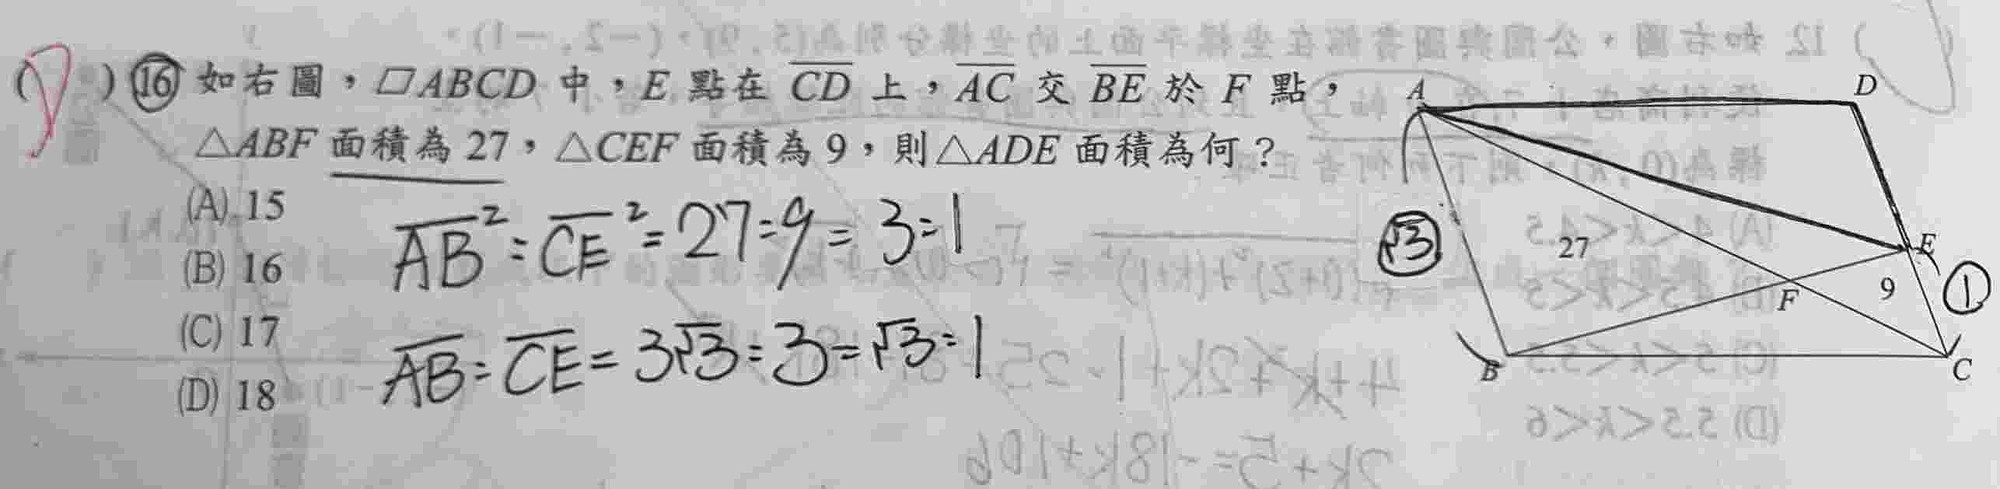 ( ) 16 如右圖，▱ABCD 中，E 點在 CD 上，AC 交 BE 於 F 點，
△ABF 面積為 27，△CEF 面積為 9，則△ADE 面積為何？
(A) 15
(B) 16
(C) 17
(D) 18
AB² : CE² = 27 : 9 = 3 : 1
AB : CE = 3√3 : 3 = √3 : 1
A
D
√3
27
E
9
1
F
B
C